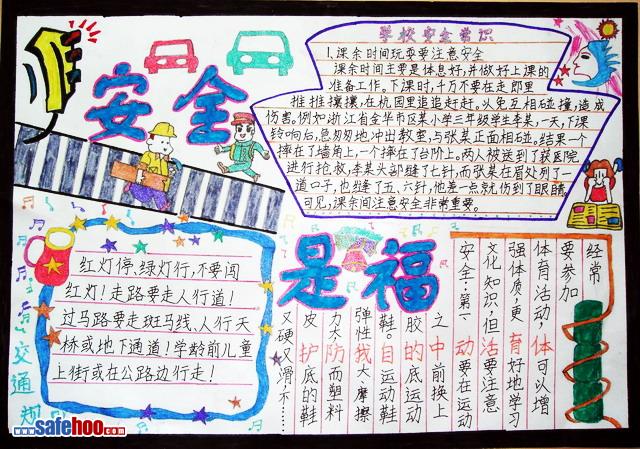 安全
是福
学校安全常识
1、课余时间玩耍要注意安全
课余时间主要是休息好,并做好上课的
准备工作。下课时,千万不要在走即里
推推攘攘,在校园里追追赶赶。以免互相碰撞,造成
伤害。例如浙江省金华市区某小学三年级学生李某,一天,下课
铃响后,急匆匆地冲出教室,与张某正面相碰。结果一个
摔在了墙角上,一个摔在了台阶上。两人被送到了获医院
进行抢救,李某头部缝了七针,而张某在眉处列了一
道口子,也缝了五、六针,他差一点就伤到了眼睛
可见,课余间注意安全非常重要。
红灯停、绿灯行,不要闯
红灯!走路要走人行道!
过马路要走斑马线、人行天
桥或地下通道!学龄前儿童
上街或在公路边行走!
交通规
经常
要参加
体育活动,体可以增
强体质,更育好地学习
文化知识,但活要注意
安全:第一动要在运动
之中前换上
胶的底运动
鞋。自运动鞋
弹性我大、摩擦
力不防而塑料
皮护底的鞋
又硬又滑不……
www.safehoo.com